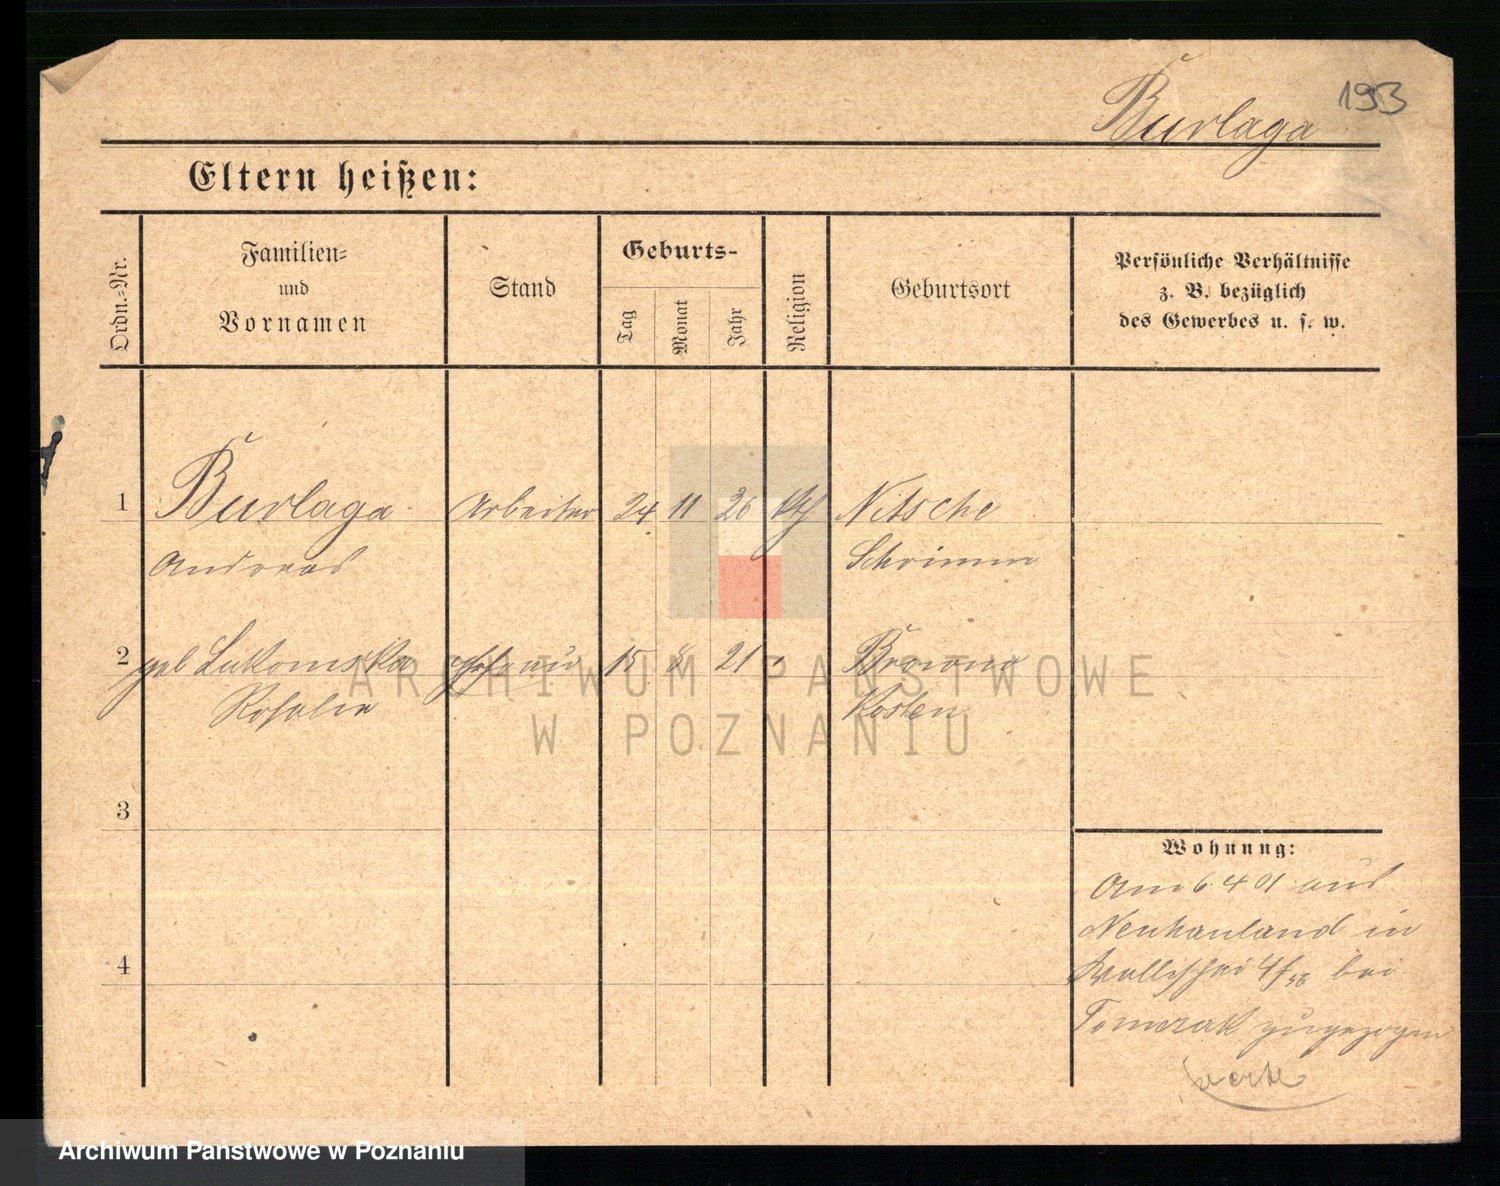 Burlaga
193
Eltern heißen:
Ordn.-Nr.
Familien-
und
Vornamen
Stand
Geburts-
Tag
Monat
Jahr
Religion
Geburtsort
Persönliche Verhältnisse
z. B. bezüglich
des Gewerbes u. s. w.
1
Burlaga
Arbeiter
24
11
26
kth
Nitsche
Andreas
Schrimm
2
geb Lukomska
Ehefrau
15
8
21
Kosten
Rosalie
3
Wohnung:
Am 6 4 01 aus
Neuhauland in
Wallischei 4/5 bei
4
Tomczak zugezogen
ARCHIWUM PAŃSTWOWE
W POZNANIU
Archiwum Państwowe w Poznaniu